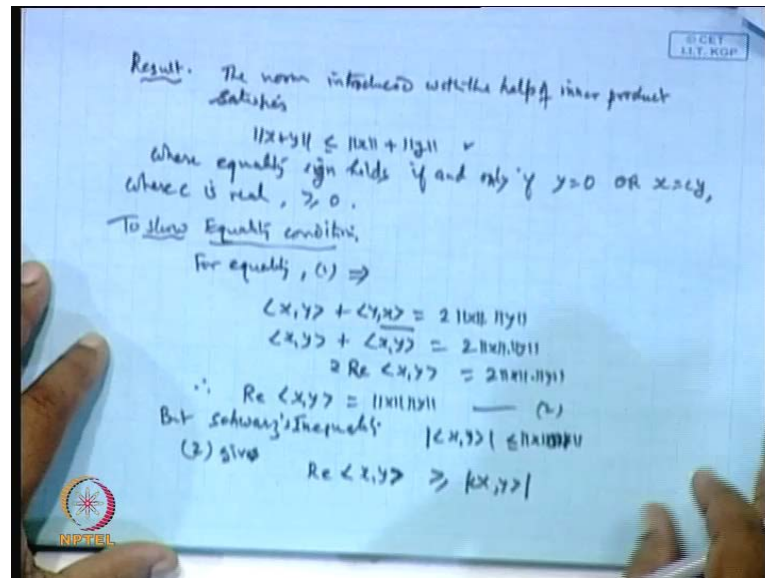 © CET
I.I.T. KGP
Result. The norm introduced with the help of inner product
satisfies
||x+y|| ≤ ||x|| + ||y||
where equality sign holds if and only if y=0 OR x=cy,
where c is real, ≥ 0.
To show Equality condition,
For equality, (1) ⇒
<x,y> + <y,x> = 2 ||x|| ||y||
<x,y> + \overline{<x,y>} = 2||x||.||y||
2 Re <x,y> = 2||x||.||y||
∴ Re <x,y> = ||x|| ||y|| —— (2)
But Schwarz's Inequality |<x,y>| ≤ ||x|| ||y||
(2) gives
Re <x,y> ≥ |<x,y>|
NPTEL